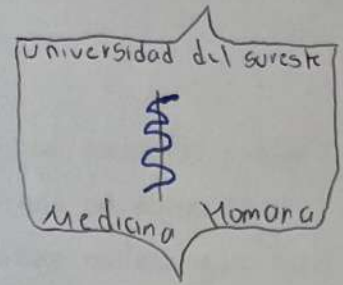 Universidad del sureste
Medicina Homana